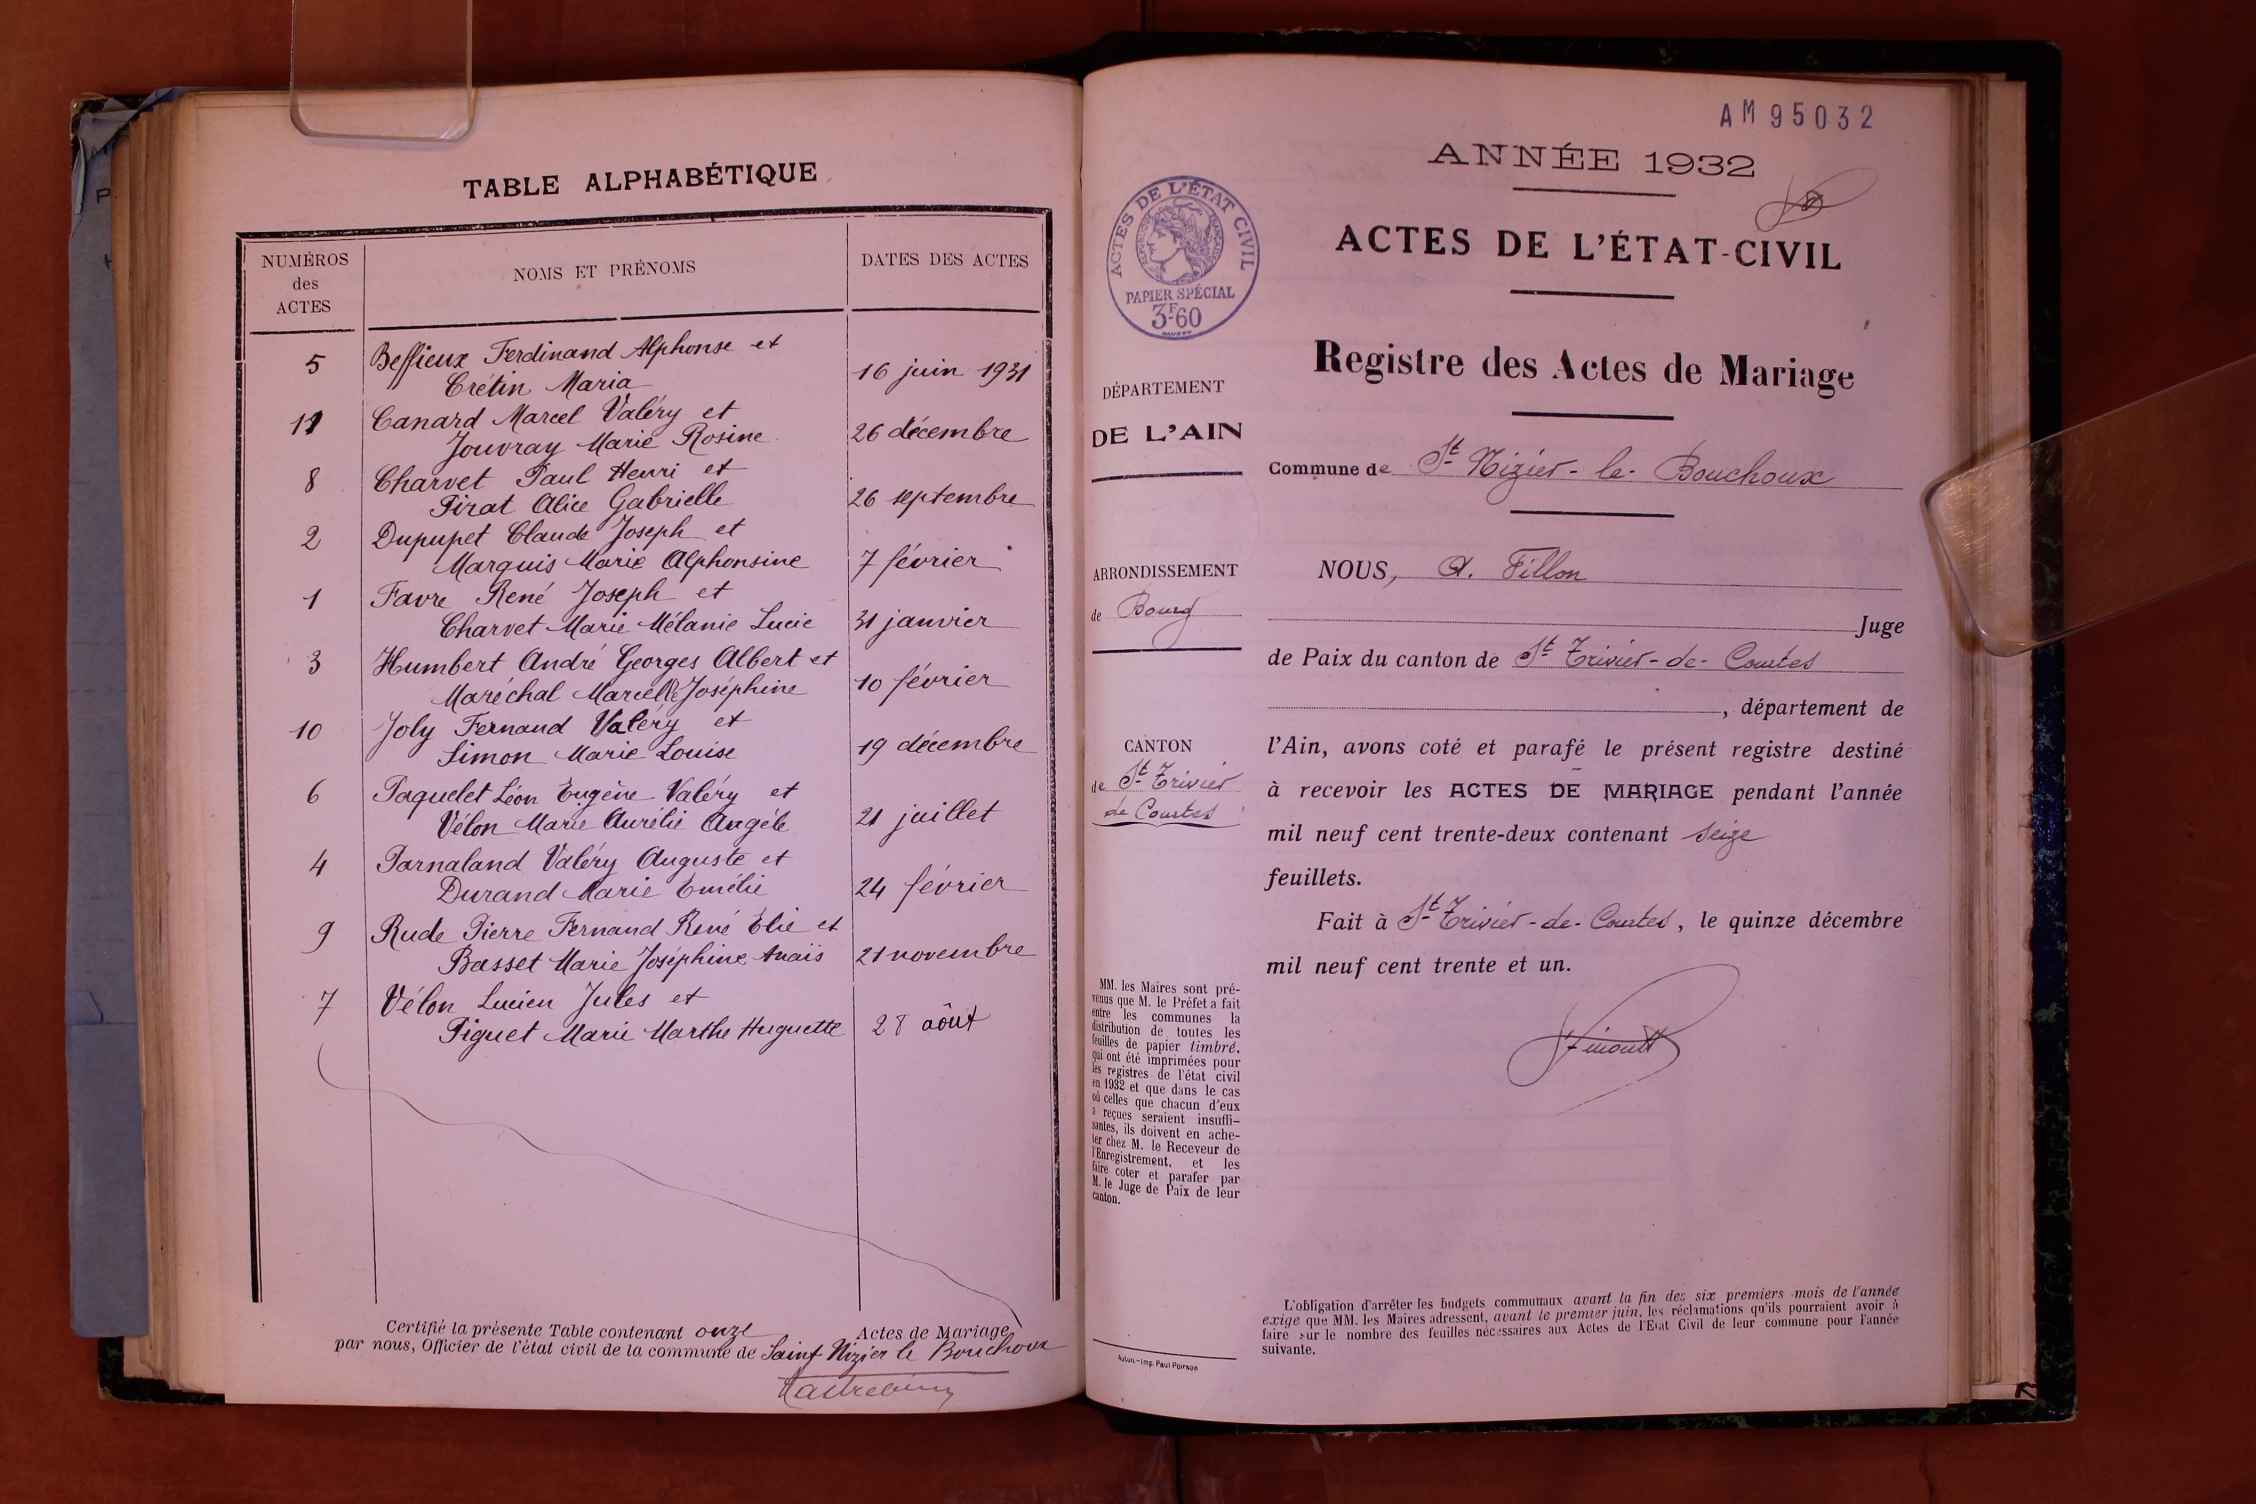 TABLE ALPHABÉTIQUE
NUMÉROS
des
ACTES
NOMS ET PRÉNOMS
DATES DES ACTES
5 Beffieux Ferdinand Alphonse et
Crétin Maria 16 juin 1931
11 Canard Marcel Valéry et
Jouvray Marie Rosine 26 décembre
8 Charvet Paul Henri et
Pirat Alice Gabrielle 26 septembre
2 Dupupet Claude Joseph et
Marquis Marie Alphonsine 7 février
1 Favre René Joseph et
Charvet Marie Mélanie Lucie 31 janvier
3 Humbert André Georges Albert et
Maréchal Marcelle Joséphine 10 février
10 Joly Fernand Valéry et
Simon Marie Louise 19 décembre
6 Paquelet Léon Eugène Valéry et
Vélon Marie Aurélie Angèle 21 juillet
4 Parnaland Valéry Auguste et
Durand Marie Emélie 24 février
9 Rude Pierre Fernand René Élie et
Basset Marie Joséphine Anaïs 21 novembre
7 Vélon Lucien Jules et
Piguet Marie Marthe Huguette 28 août
Certifié la présente Table contenant onze Actes de Mariage
par nous, Officier de l'état civil de la commune de Saint Nizier le Bouchoux
AM95032
ANNÉE 1932
ACTES DE L'ÉTAT CIVIL
RÉPUBLIQUE FRANÇAISE
PAPIER SPÉCIAL
3F60
ACTES DE L'ÉTAT-CIVIL
Registre des Actes de Mariage
DÉPARTEMENT
DE L'AIN
Commune de St Nizier-le-Bouchoux
ARRONDISSEMENT
de Bourg
CANTON
de St Trivier
de Courtes
NOUS, A. Fillon
Juge
de Paix du canton de St Trivier-de-Courtes
, département de
l'Ain, avons coté et parafé le présent registre destiné
à recevoir les ACTES DE MARIAGE pendant l'année
mil neuf cent trente-deux contenant seize
feuillets.
Fait à St Trivier-de-Courtes, le quinze décembre
mil neuf cent trente et un.
MM. les Maires sont pré-
venus que M. le Préfet a fait
entre les communes la
distribution de toutes les
feuilles de papier timbré,
qui ont été imprimées pour
les registres de l'état civil
en 1932 et que dans le cas
où celles que chacun d'eux
a reçues seraient insuffi-
santes, ils doivent en ache-
ter chez M. le Receveur de
l'Enregistrement, et les
faire coter et parafer par
M. le Juge de Paix de leur
canton.
Autun.-Imp. Paul Poirson
L'obligation d'arrêter les budgets communaux avant la fin des six premiers mois de l'année
exige que MM. les Maires adressent, avant le premier juin, les réclamations qu'ils pourraient avoir à
faire sur le nombre des feuilles nécessaires aux Actes de l'Etat Civil de leur commune pour l'année
suivante.